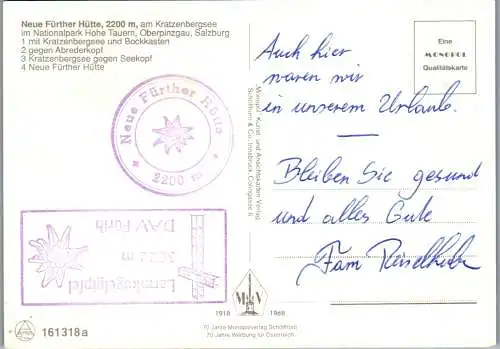 Neue Fürther Hütte, 2200 m, am Kratzenbergsee
im Nationalpark Hohe Tauern, Oberpinzgau, Salzburg
1 mit Kratzenbergsee und Bockkasten
2 gegen Abrederkopf
3 Kratzenbergsee gegen Seekopf
4 Neue Fürther Hütte
Eine
MONOPOL
Qualitätskarte
Auch hier
waren wir
in unserem Urlaub.
Bleiben Sie gesund
und alles Gute
Fam
Neue Fürther Hütte
2200 m
Larmkogelgipfel
m
DAV Fürth
Monopol, Kunst- und Ansichtskarten Verlag
Schöllhorn & Co, Innsbruck,
1918 1988
70 Jahre Monopolverlag Schöllhorn
70 Jahre Werbung für Österreich
161318a